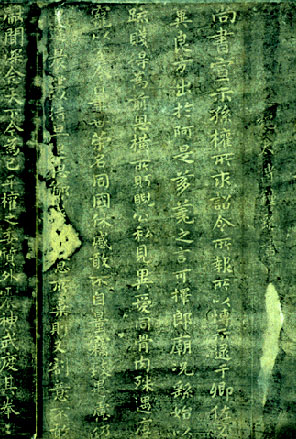 尚書宣示孫權所求詔令所報所以博示逮于卿佐必
冀良方出於阿是芻蕘之言可擇郎廟況繇始以
疏賤得為前恩橫所盼睨公私見異愛同骨肉殊遇厚
寵以至今日再世榮名同國休慼敢不自量竊致愚慮仍
日達晨坐以待旦退思鄙意所棄則又割意不敢
獻聞深念天下今為已平權之委質外震神武度其拳〻